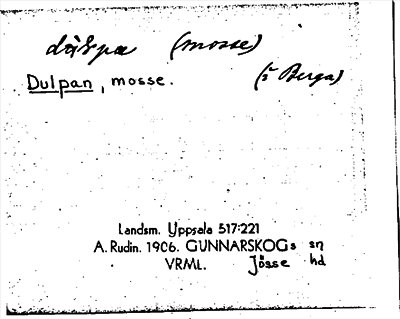 (mosse)
Dulpan, mosse. (i Berga)
Landsm. Uppsala 517:221
A. Rudin. 1906. GUNNARSKOGs sn
VRML. Jösse hd